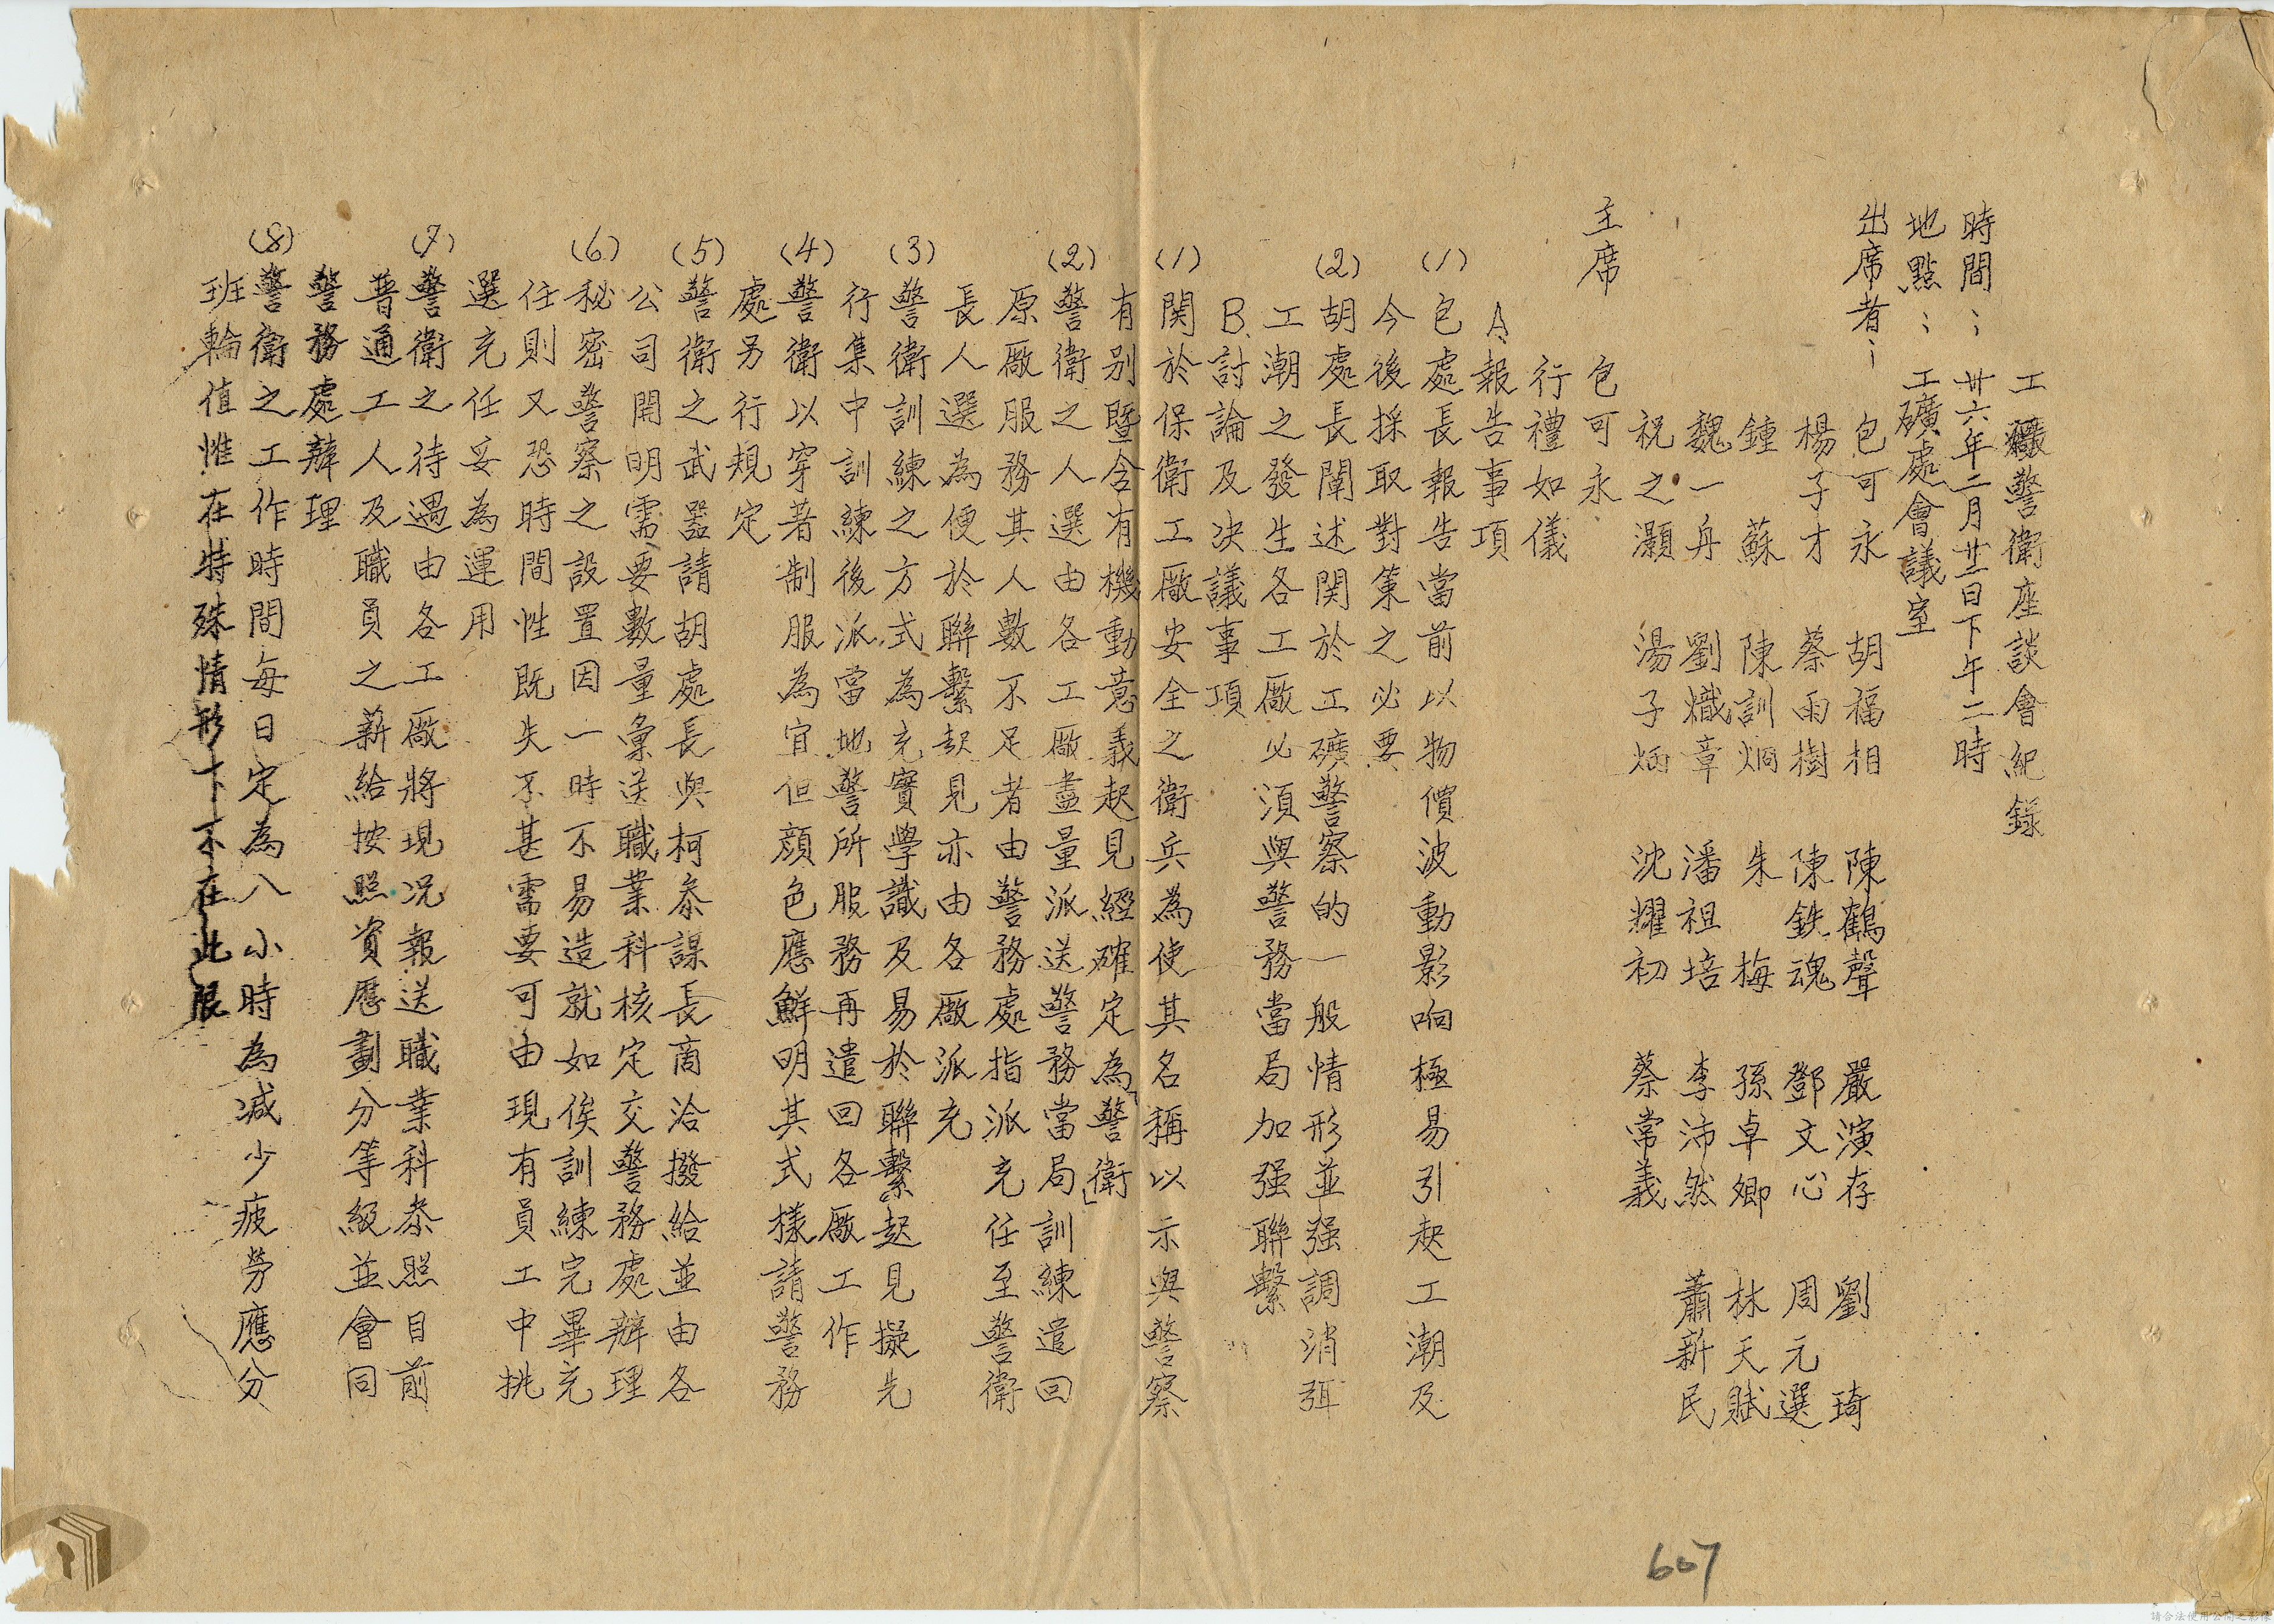 工礦警衛座談會紀錄
時間；卅六年二月廿二日下午二時
地點；工礦處會議室
出席者；包可永 胡福相 陳鶴聲 嚴演存 劉琦
楊子才 蔡雨樹 陳鉄魂 鄧文心 周元選
鍾蘇 陳訓炯 朱梅 孫卓卿 林天賦
魏一舟 劉熾章 潘祖培 李沛然 蕭新民
祝之灝 湯子炳 沈耀初 蔡常義
主席 包可永
行禮如儀
A、報告事項
(1)包處長報告當前以物價波動影响極易引起工潮及
今後採取對策之必要
(2)胡處長闡述関於工礦警察的一般情形並强調消弭
工潮之發生各工廠必須與警務當局加强聯繫
B、討論及決議事項
(1)関於保衛工廠安全之衛兵為使其名稱以示與警察
有別暨含有機動意義起見經確定為「警衛」
(2)警衛之人選由各工廠盡量派送警務當局訓練遣回
原廠服務其人數不足者由警務處指派充任至警衛
長人選為便於聯繫起見亦由各廠派充
(3)警衛訓練之方式為充實學識及易於聯繫起見擬先
行集中訓練後派當地警所服務再遣回各廠工作
(4)警衛以穿著制服為宜但顏色應鮮明其式樣請警務
處另行規定
(5)警衛之武器請胡處長與柯叅謀長商洽撥給並由各
公司開明需要數量彙送職業科核定交警務處辦理
(6)秘密警察之設置因一時不易造就如俟訓練完畢充
任則又恐時間性既失不甚需要可由現有員工中挑
選充任妥為運用
(7)警衛之待遇由各工廠將現況報送職業科叅照目前
普通工人及職員之薪給按照資歷劃分等級並會同
警務處辦理
(8)警衛之工作時間每日定為八小時為减少疲勞應分
班輪值惟在特殊情形下不在此限
607
請合法使用公開之影像